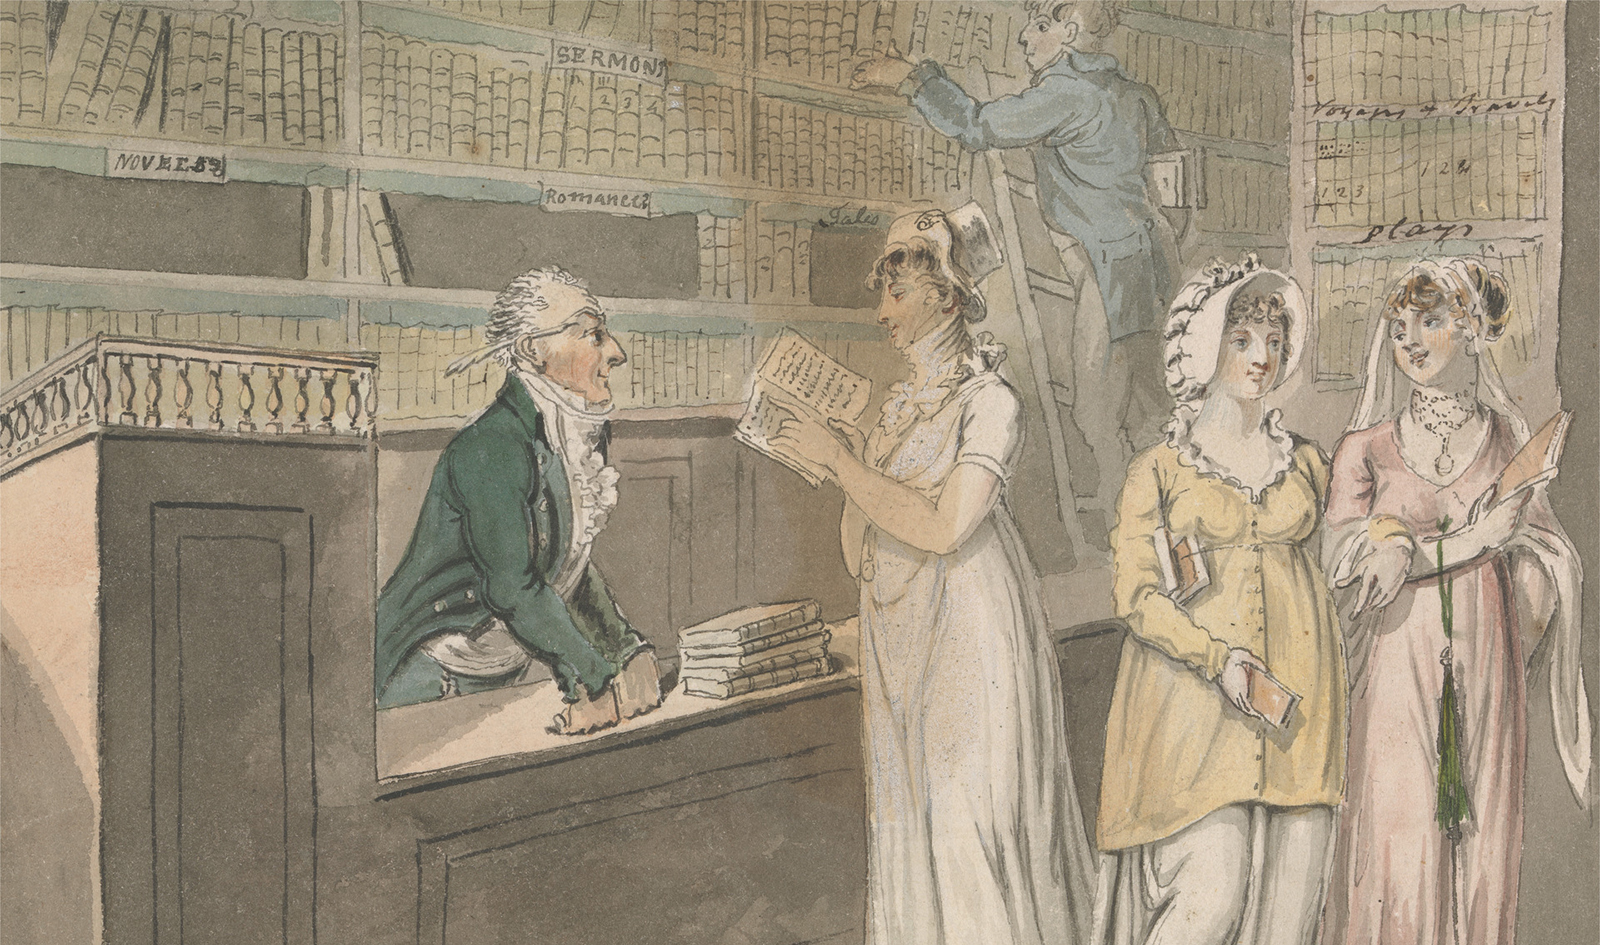 SERMONS
1 2 3 4
NOVELS
Romances
Tales
Voyages & Travels
1 2 3
1 2 3
Plays